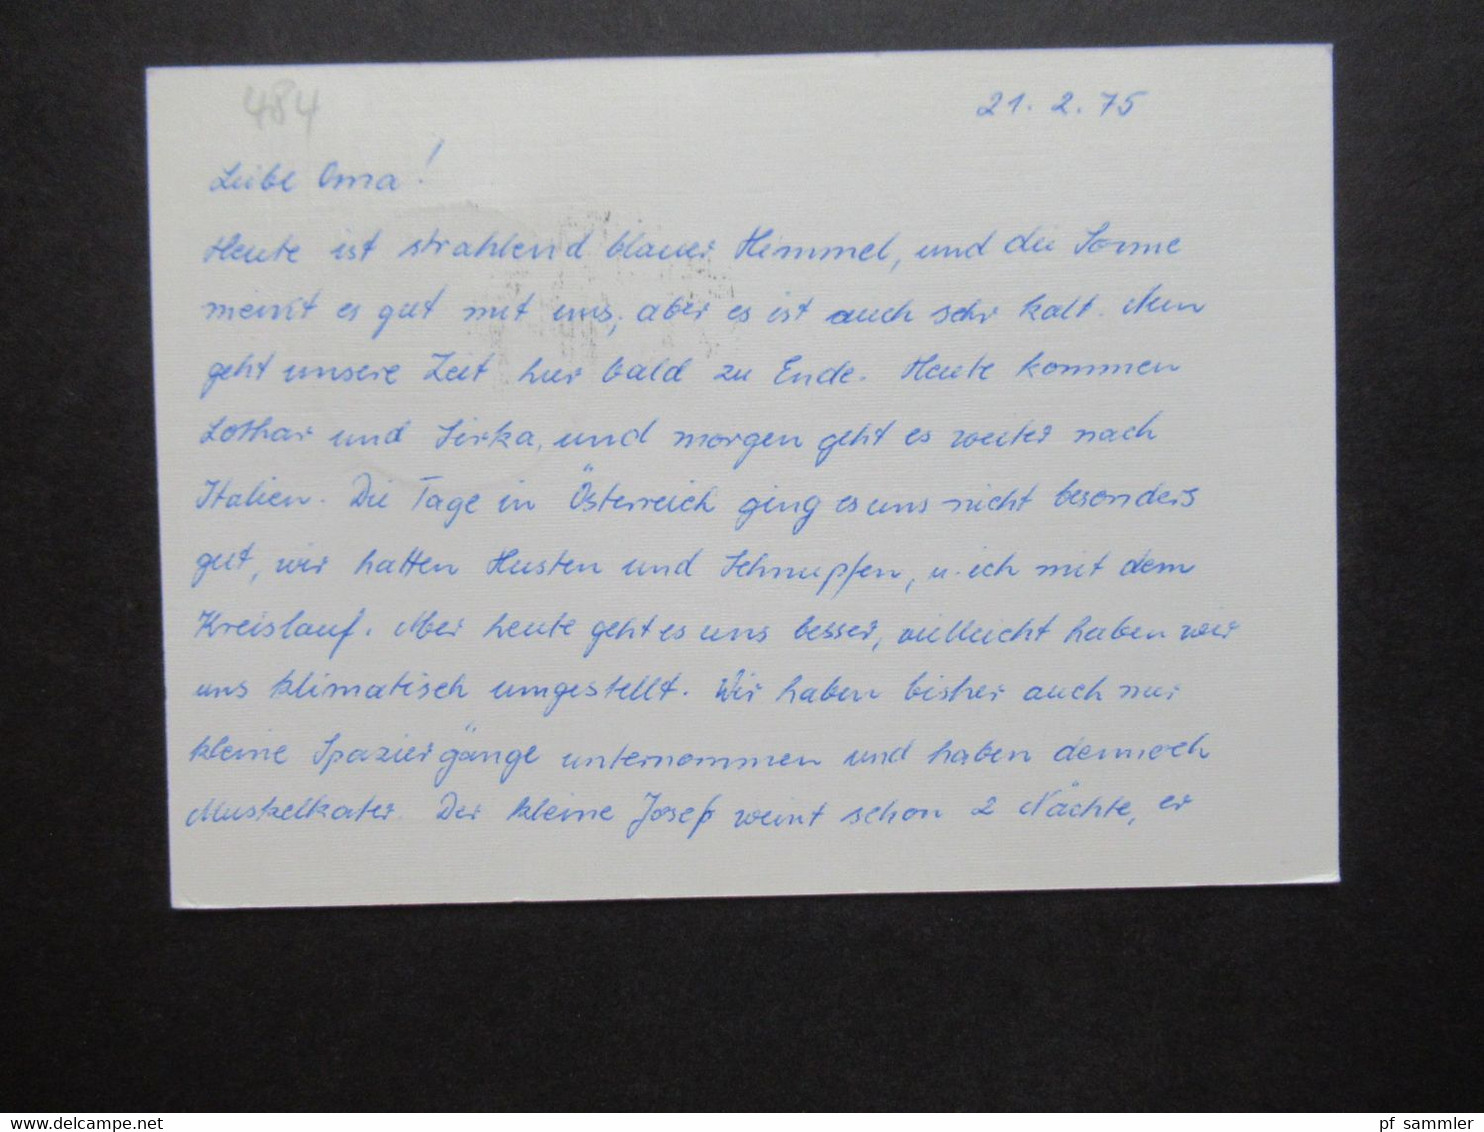 484
21. 2. 75
Liebe Oma!
Heute ist strahlend blauer Himmel, und die Sonne
meint es gut mit uns, aber es ist auch sehr kalt. Nun
geht unsere Zeit hier bald zu Ende. Heute kommen
Lothar und Sirka, und morgen geht es weiter nach
Italien. Die Tage in Österreich ging es uns nicht besonders
gut, wir hatten Husten und Schnupfen, u. ich mit dem
Kreislauf. Aber heute geht es uns besser, vielleicht haben wir
uns klimatisch umgestellt. Wir haben bisher auch nur
kleine Spaziergänge unternommen und haben dennoch
Muskelkater. Der kleine Josef weint schon 2 Nächte, er
www.delcampe.net
pf_sammler